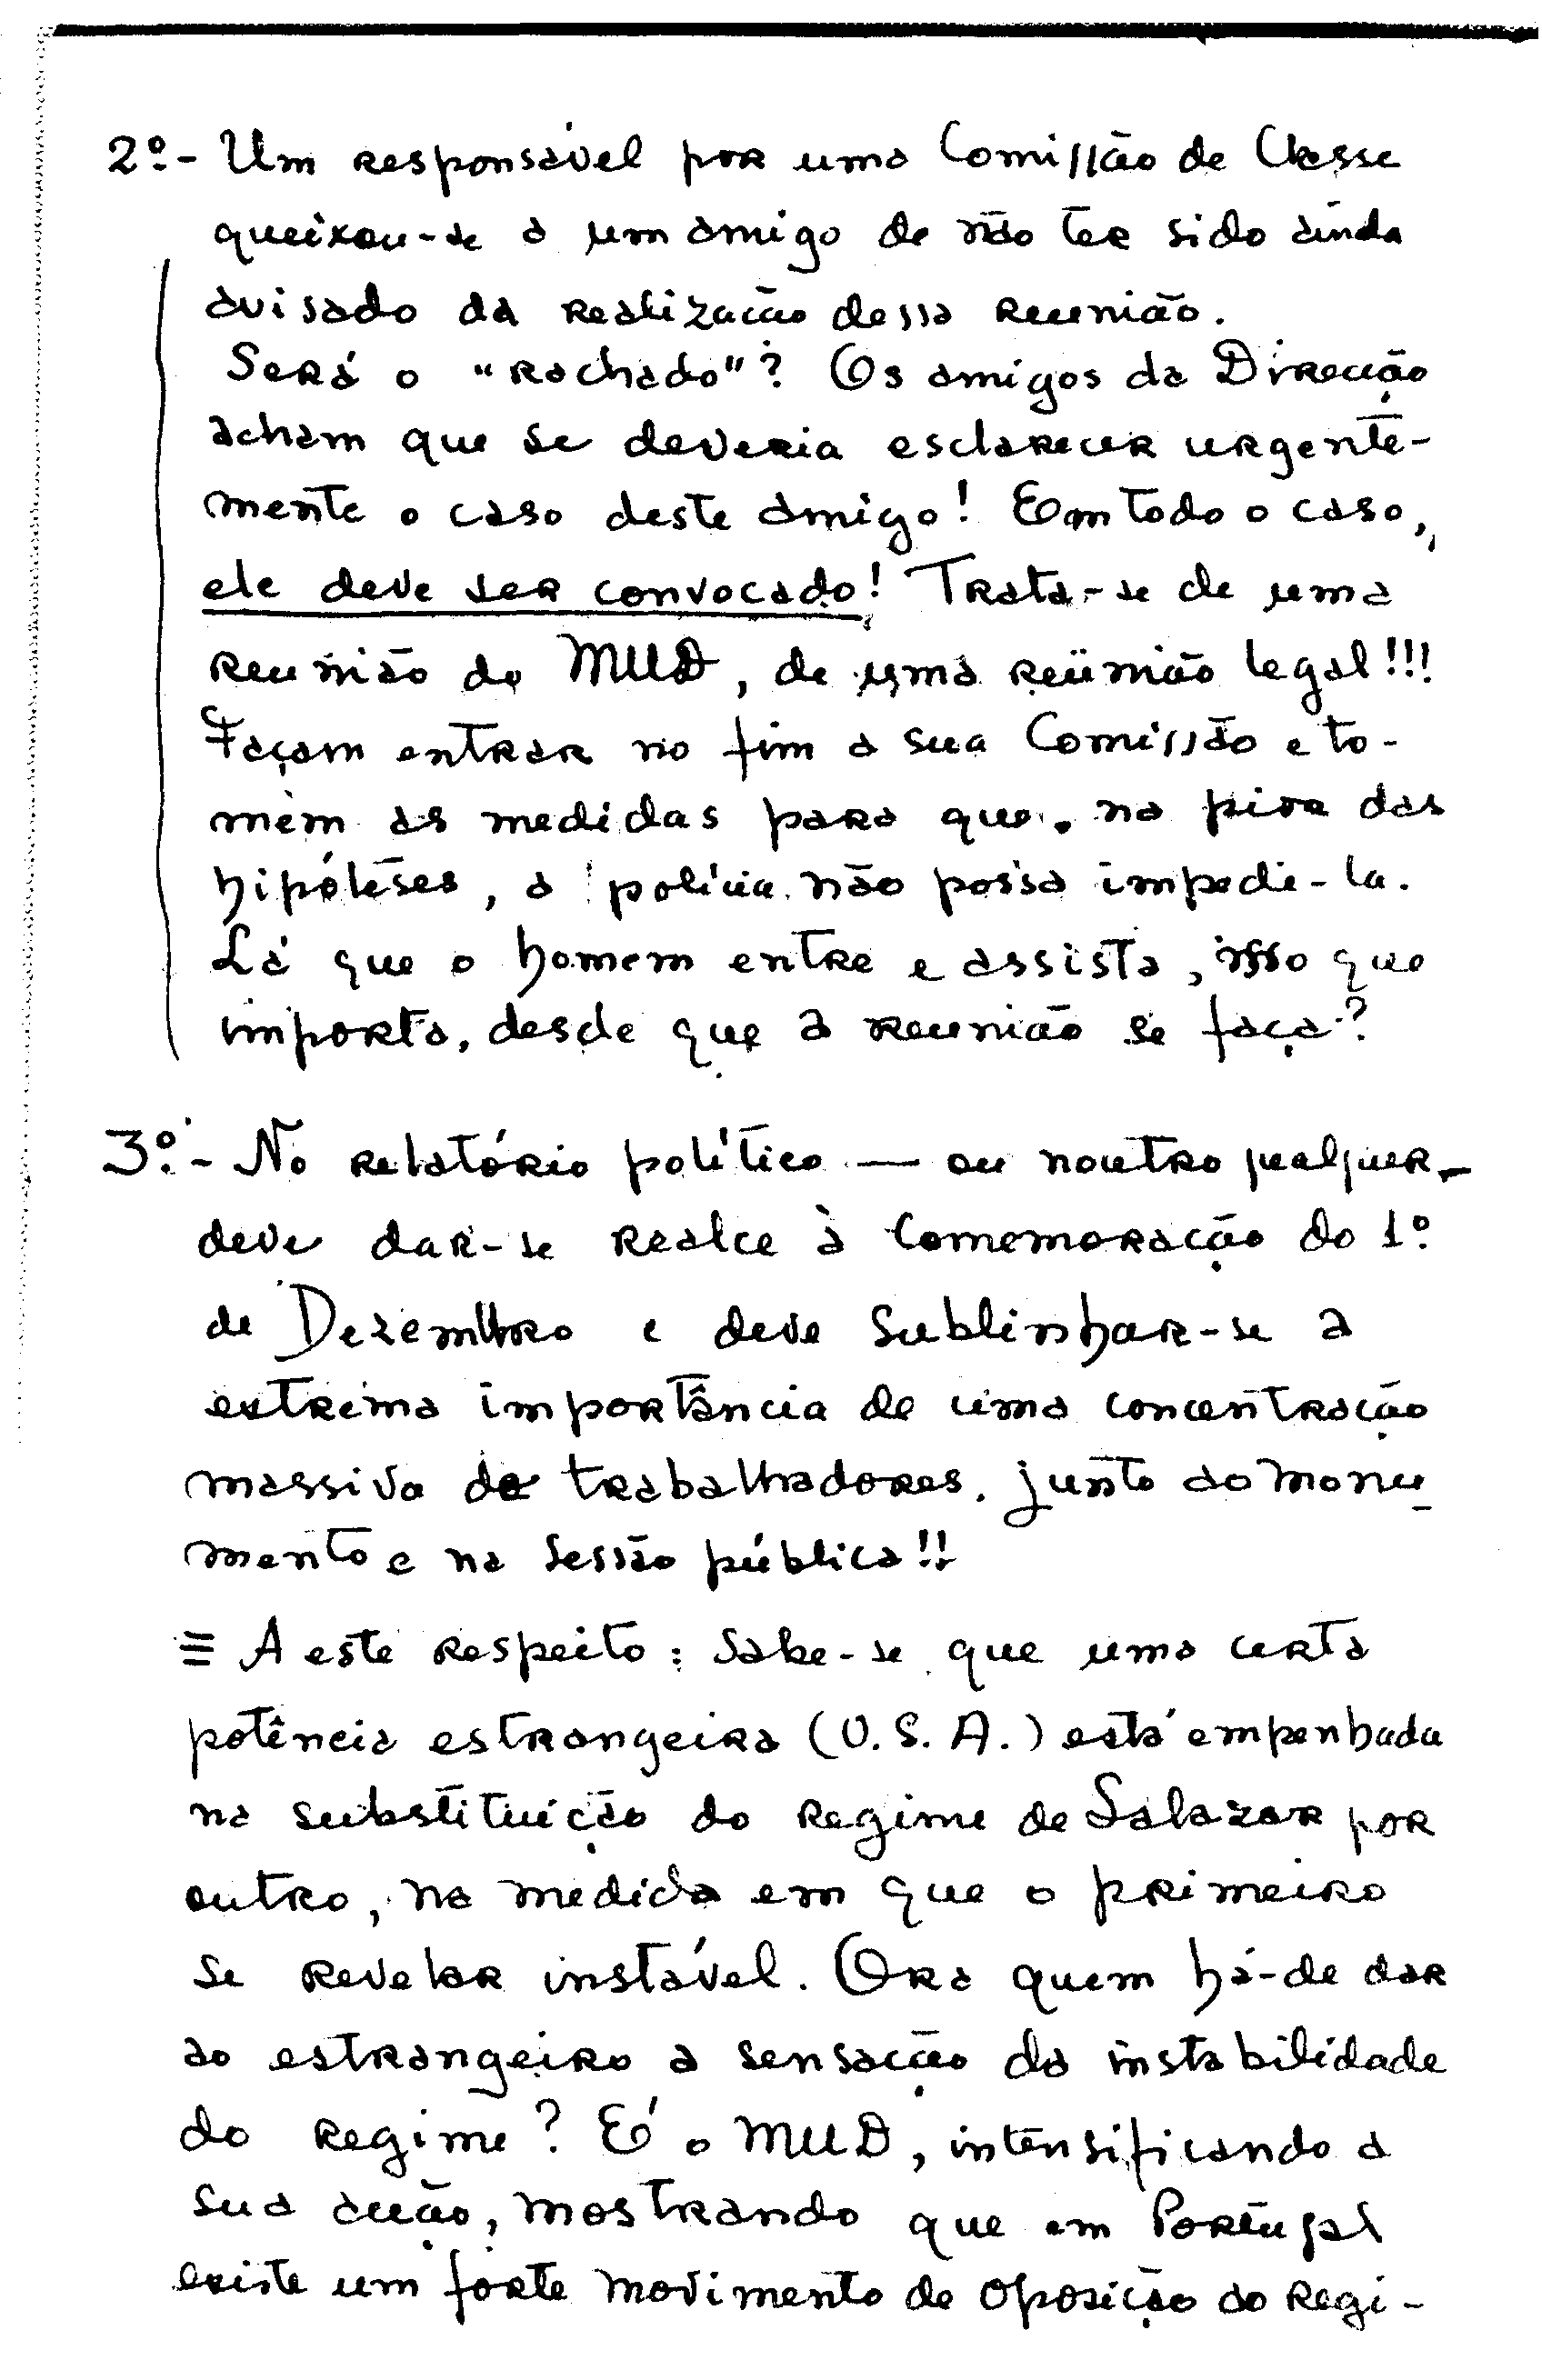 2º.- Um responsável por uma Comissão de Classe
queixou-se a um amigo de não ter sido ainda
avisado da realização dessa reunião.
Será o "rachado"? Os amigos da Direcção
acham que se deveria esclarecer urgente-
mente o caso deste amigo! Em todo o caso,
ele deve ser convocado! Trata-se de uma
reunião do MUD, de uma reünião legal!!!
Façam entrar no fim a sua Comissão e to-
mem as medidas para que, na pior das
hipóteses, a polícia não possa impedi-la.
Lá que o homem entre e assista, isso que
importa, desde que a reunião se faça?
3º.- No relatório político — ou noutro qualquer -
deve dar-se realce à Comemoração do 1º.
de Dezembro e deve sublinhar-se a
extrema importância de uma concentração
massiva de trabalhadores, junto ao monu-
mento e na sessão pública!!
= A este respeito: Sabe-se que uma certa
potência estrangeira (U.S.A.) está empenhada
na substituição do regime de Salazar por
outro, na medida em que o primeiro
se revelar instável. Ora quem há-de dar
ao estrangeiro a sensação da instabilidade
do regime? É o MUD, intensificando a
sua acção, mostrando que em Portugal
existe um forte movimento de oposição ao regi-